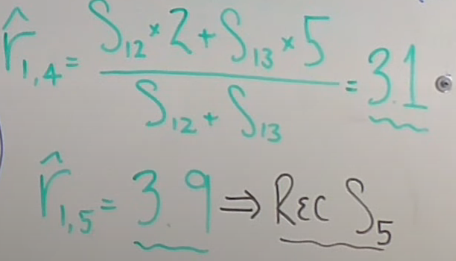 r̂₁,₄ = (S₁₂ × 2 + S₁₃ × 5) / (S₁₂ + S₁₃) = 3.1
r̂₁,₅ = 3.9 ⇒ REC S₅